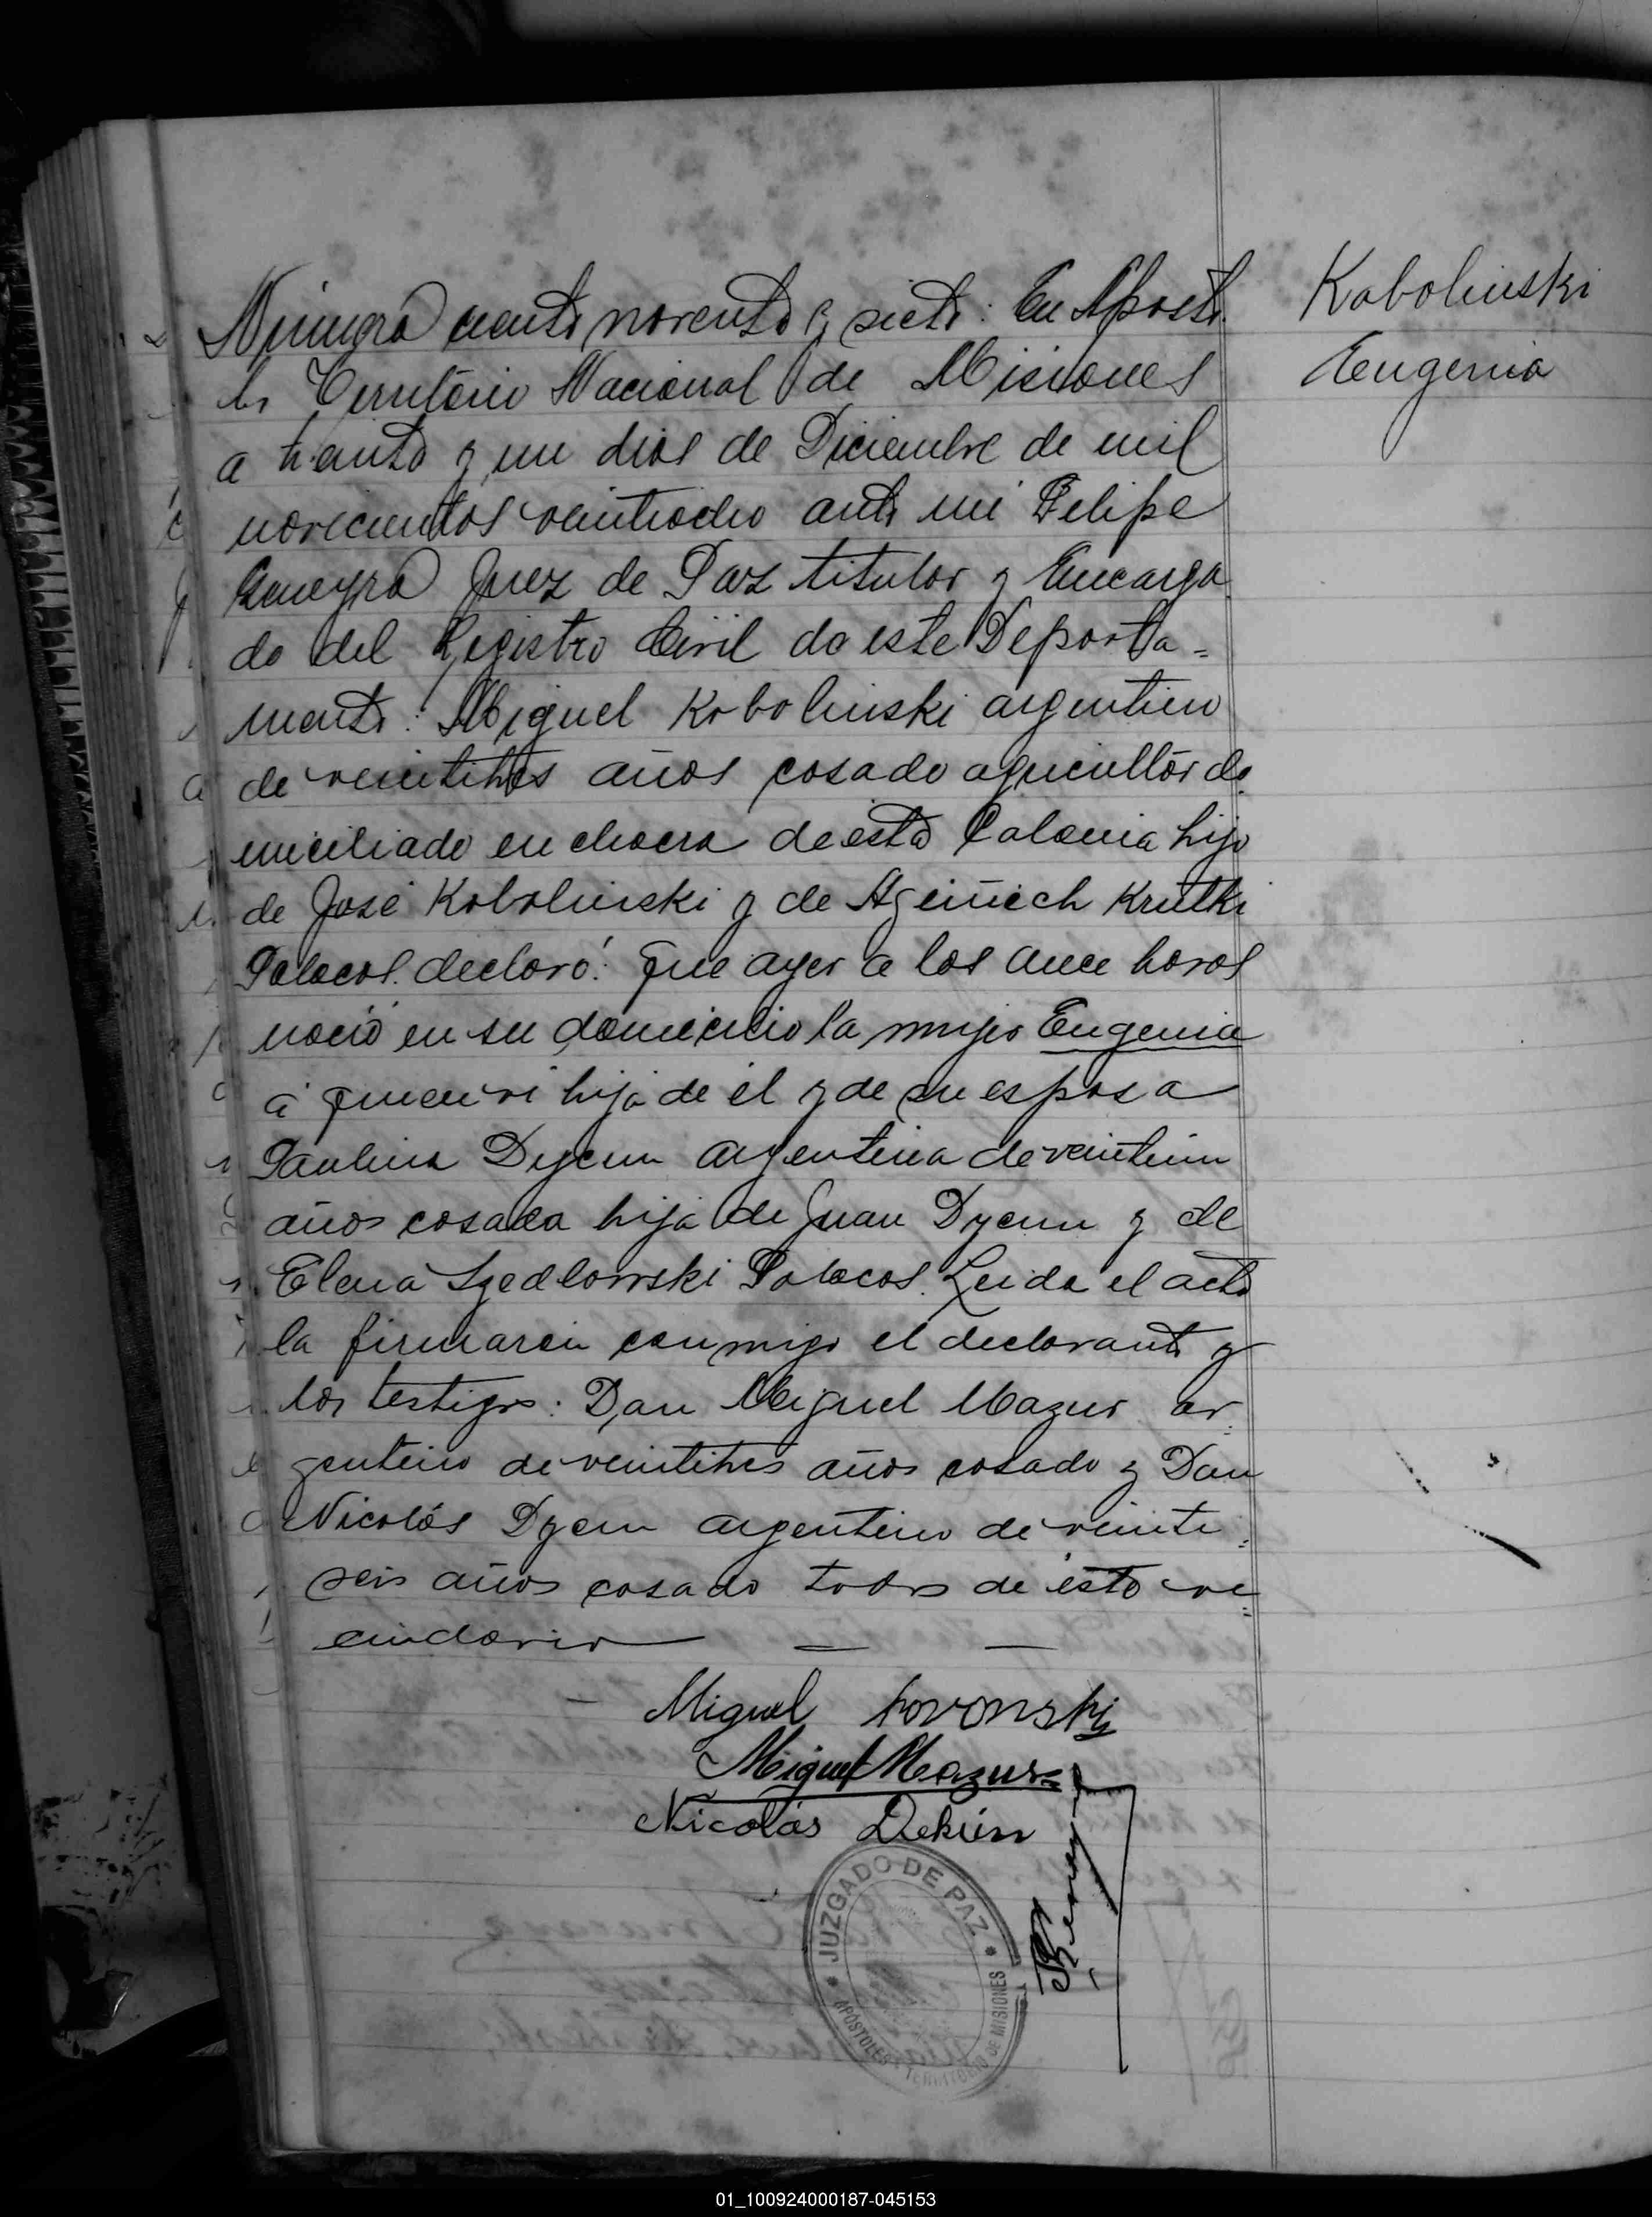 Kobolinski
Eugenia
Número ciento noventa y siete: En Aposto
les Territorio Nacional de Misiones
a treinta y un dias de Diciembre de mil
novecientos veintiocho ante mi Felipe
Juez de Paz titular y Encarga
do del Registro Civil de este Departa=
mento: Miguel Kobolinski argentino
de veintitres años casado agricultor do
miciliado en chacra de esta Colonia hijo
de José Kobolinski y de Krutki
Polacos. declaró: Que ayer a las once horas
nació en su domicilio la mujer Eugenia
á quien vi hija de él y de su esposa
Paulina Dycun argentina de veintiun
años casada hija de Juan Dycun y de
Elena Szedlowski Polacos. Leida el acta
la firmaron conmigo el declarante y
los testigos: Don Miguel Mazur ar=
gentino de veintitres años casado y Don
Nicolás Dycun argentino de veinti=
seis años casado todos de esta ve=
cindario
Miguel
Miguel Mazur
Nicolás Dekún
JUZGADO DE PAZ
APOSTOLES - TERRITORIO DE MISIONES
01_100924000187-045153